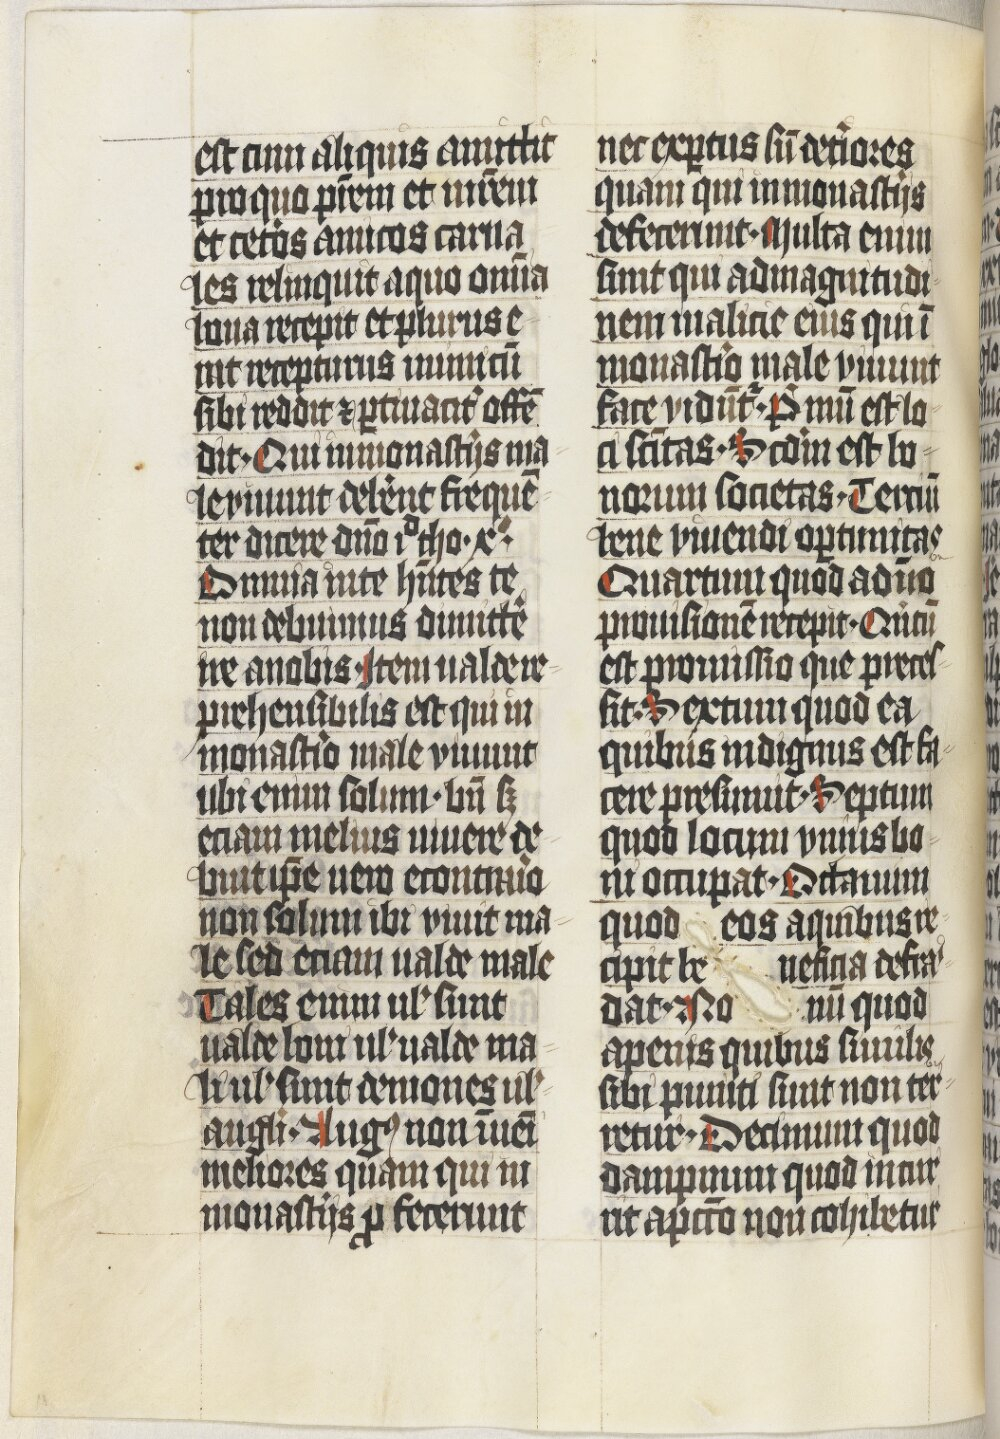 est cum aliquis amittit
pro quo pr̄em et mr̄em
et cet̾os amicos carna
les relinquit a quo om̄ia
bona recepit et plurus e
nit recepturus inimicū
sibi reddit ⁊ ꝑtinacit̾ offē
dit· Qui in monastijs ma
le viuunt deberent frequē
ter dicere dn̄o id tho· x·
Omnia in te hn̄tes te
non debuimus dimitte
re a nobis· Item ualde re
prehensibilis est qui in
monast̾io male viuunt
ubi enim solum· bn̄ sꝫ
eciam melius uiuere de
buit ip̄e uero econtrario
non solum ibi viuit ma
le sed eciam ualde male
Tales enim ul̾ sunt
ualde boni ul̾ ualde ma
li ul̾ sunt demones ul̾
angli· Augꝰ non īueī
meliores quam qui in
monastijs ꝓfecerunt
nec exꝑtus sū det̾iores
quam qui in monastijs
defecerunt· Multa enim
sunt qui ad magnitudi
nem malicie eius qui ī
monast̾io male viuunt
face vidūt̾· P̾mū est lo
ci scītas· Scdm̄ est bo
norum societas· Terciū
bene viuendi oꝑtunitas
Quartum quod a dn̄o
prouisionē recepit· Qūitū
est promissio que preces
sit· Sextum quod ea
quibus indignus est fa
cere presumit· Septum
quod locum vnius bo
ni occupat· Octauum
quod eos a quibus re
cipit beneficia defrau
dat· Nonū quod
a penis quibus similes
sibi puniti sunt non ter
retur· Decimum quod
dampnum quod incur
rit a pcc̄o non cohibetur